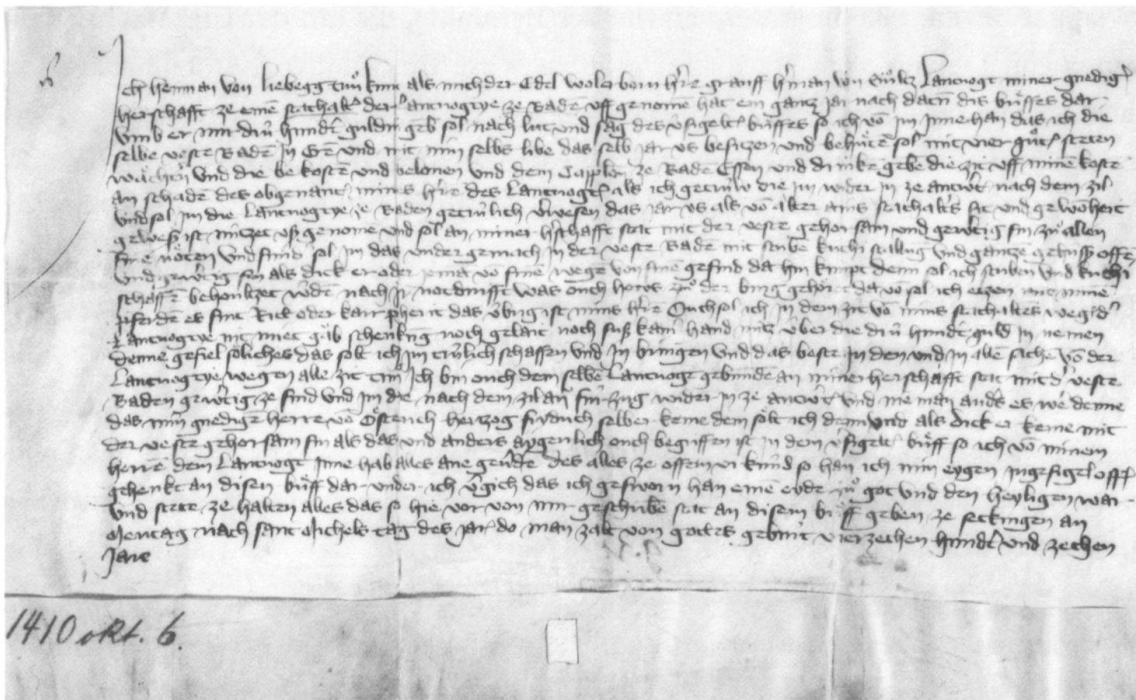 Ich Hemman von Liebegg tuͦn kunt als mich der Edel wolerborn h're grauff h'man von Sultz Lantuogt miner gnedig'
herschafft ze einem stathalt' der Lantuogtye ze Baden uff genomē hat ein gantz jar nach datū dis brieffes dar
umb er mir driu hundert guldin geben sol nach lut und sag des v'sigelt' brieffes so ich vō im inne han das ich die
selbe veste Baden in Eren und mit min selbs libe das selb jar us besitzen und behuͤten sol mit vier guͦten steten
wachtern und die bekosten und belonen und dem Capplan ze Baden Essen und drinken geben die zit uff minē kosten
an schaden des obgenant' mins h're des Lantuogtes als ich getruw die im wider in ze antw't nach dem zil
und sol im die Lantuogtye ze Baden getrulich v'wesen das jar us als vō alter eins stathalt's sit und gewonheit
gewesen ist nutzet us genomē und sol an miner h'schafft stat mit der veste gehorsam und gewertig sin zu allen
sinē noͤten und sinnd sol im das under gemach in der veste Baden mit stube kuchi stallung und gantzē offē
und gewertig sin als dick er oder jeman vō sinē wegē von sinē gesind da hin kumpt denn sol ich stuben und kuchi
schaffen behoultzet werden nach ir notdurfft was ouch hoͤwes zuͦ der burg gehoͤrt da vō sol ich etzen mine
pferde es sint Rick oder kein pherit das ubrig ist mins h're Ouch sol ich in dem zit vō mins stathalters weg' d'
Lantuogtye nit miet gab schenkung noch gelait noch suß kein hand nutz uber die driu hundert guld' in nemen
denne gefiel soliches das solt ich im trulich schaffen und in bringen und das beste in den und in allē sache vō der
Lantuogtye wegen alle zit tuͦn Ich bin ouch dem selbē Lantuogt gebunden an miner herschafft stat mit d' veste
Baden gewertig ze sind und im die nach dem zil an sin zug wider in ze antw't und nieman anders es were denne
das min gnediger herre vō Oͤsterich hertzog fridrich selber keme dem soͤlt ich denn und als dick er keme mit
der veste gehorsam sin als das und anders aygenlich ouch begriffen ist in dem v'sigelt' brieff so ich vō minem
herren dem Lantuogt inne hab alles ane geuerde des alles ze offem urkund so han ich min eygen ingesigel offē
gehenkt an disen brieff dar under ich v'gich das ich gesworn han einē eyde zuͦ got und den heyligen war
und stete ze halten alles das so hie vor von mir geschribē stat an disem brieff geben ze seckingen an
Mentag nach sant Michels tag des jares do man zalt von gottes geburt vierzechen hundert und zechen
Jare
1410 okt. 6.